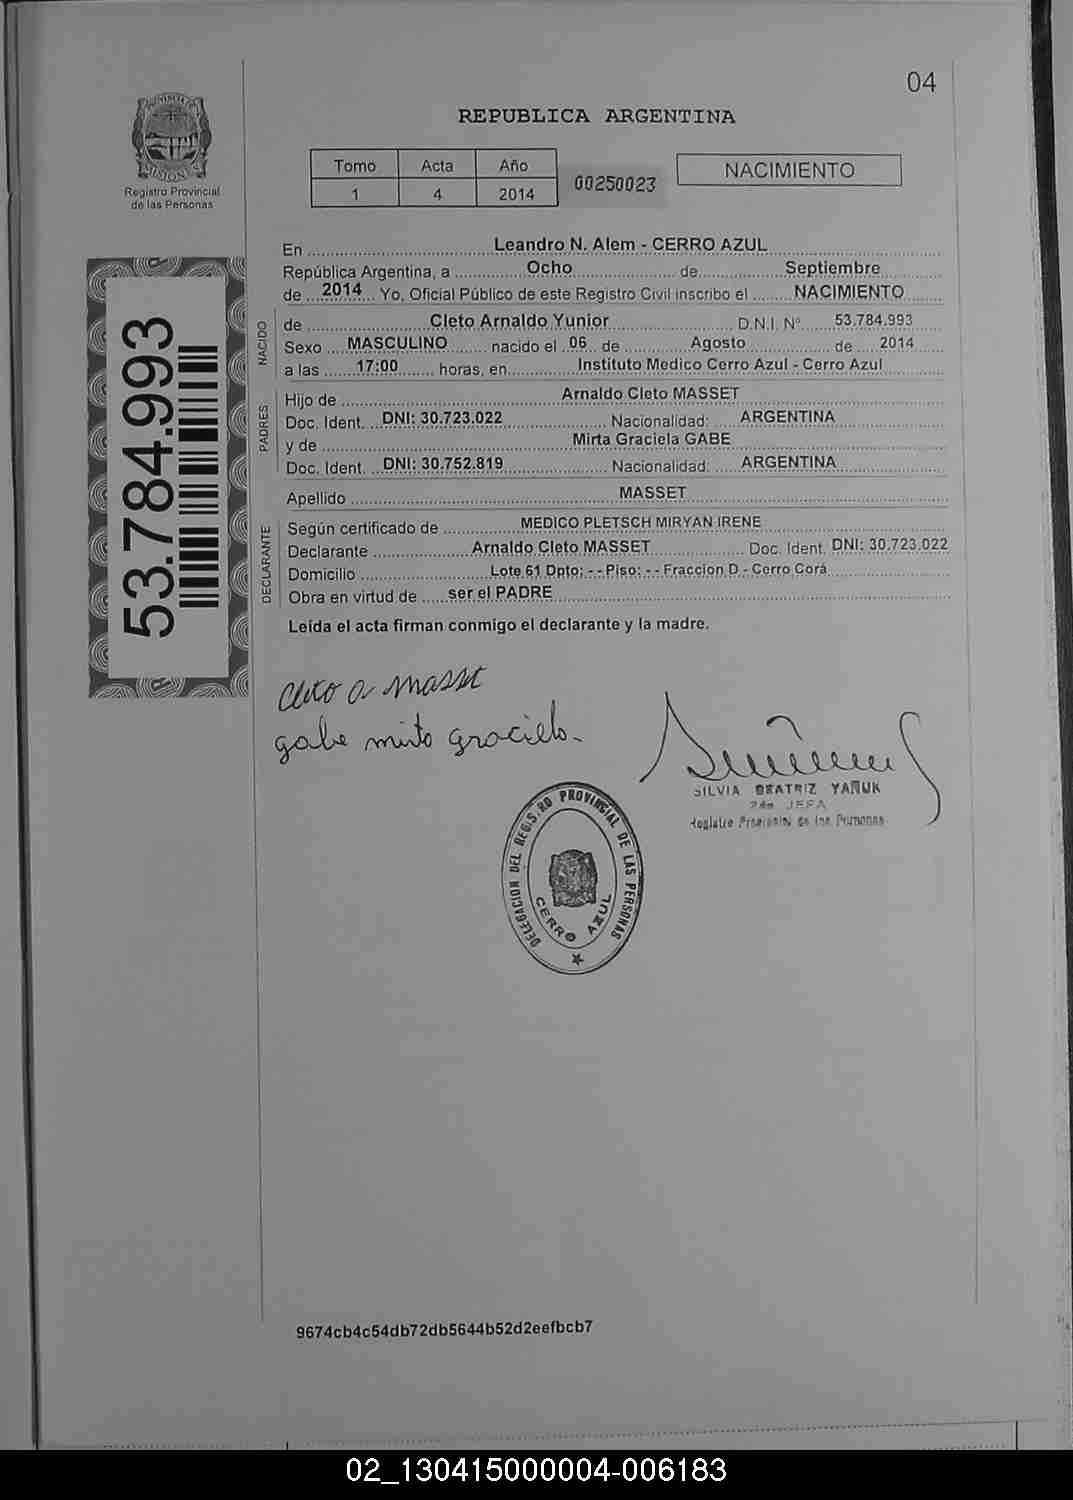 04
PROVINCIA DE MISIONES
Registro Provincial
de las Personas
REPUBLICA ARGENTINA
Tomo Acta Año
1 4 2014
00250023
NACIMIENTO
En Leandro N. Alem - CERRO AZUL
República Argentina, a Ocho de Septiembre
de 2014 Yo, Oficial Público de este Registro Civil inscribo el NACIMIENTO
NACIDO
de Cleto Arnaldo Yunior D.N.I. Nº 53.784.993
Sexo MASCULINO nacido el 06 de Agosto de 2014
a las 17:00 horas, en Instituto Medico Cerro Azul - Cerro Azul
PADRES
Hijo de Arnaldo Cleto MASSET
Doc. Ident. DNI: 30.723.022 Nacionalidad: ARGENTINA
y de Mirta Graciela GABE
Doc. Ident. DNI: 30.752.819 Nacionalidad: ARGENTINA
Apellido MASSET
DECLARANTE
Según certificado de MEDICO PLETSCH MIRYAN IRENE
Declarante Arnaldo Cleto MASSET Doc. Ident. DNI: 30.723.022
Domicilio Lote 61 Dpto: - - Piso: - - Fraccion D - Cerro Corá
Obra en virtud de ser el PADRE
Leída el acta firman conmigo el declarante y la madre.
53.784.993
Cleto a Masset
gabe mirta graciela
SILVIA BEATRIZ YAÑUK
2da JEFA
Registro Provincial de las Personas
DELEGACION DEL REGISTRO PROVINCIAL DE LAS PERSONAS
CERRO AZUL
9674cb4c54db72db5644b52d2eefbcb7
02_130415000004-006183